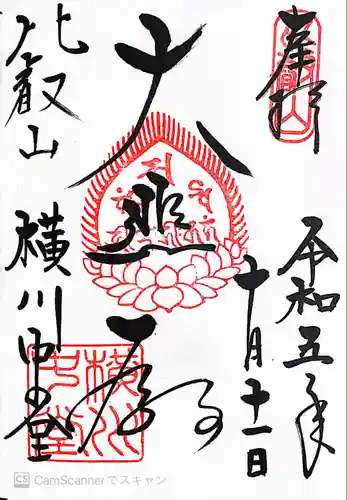 奉拝
令和五年
十月十一日
大悲殿
比叡山
横川中堂
横川
中堂
CS CamScannerでスキャン